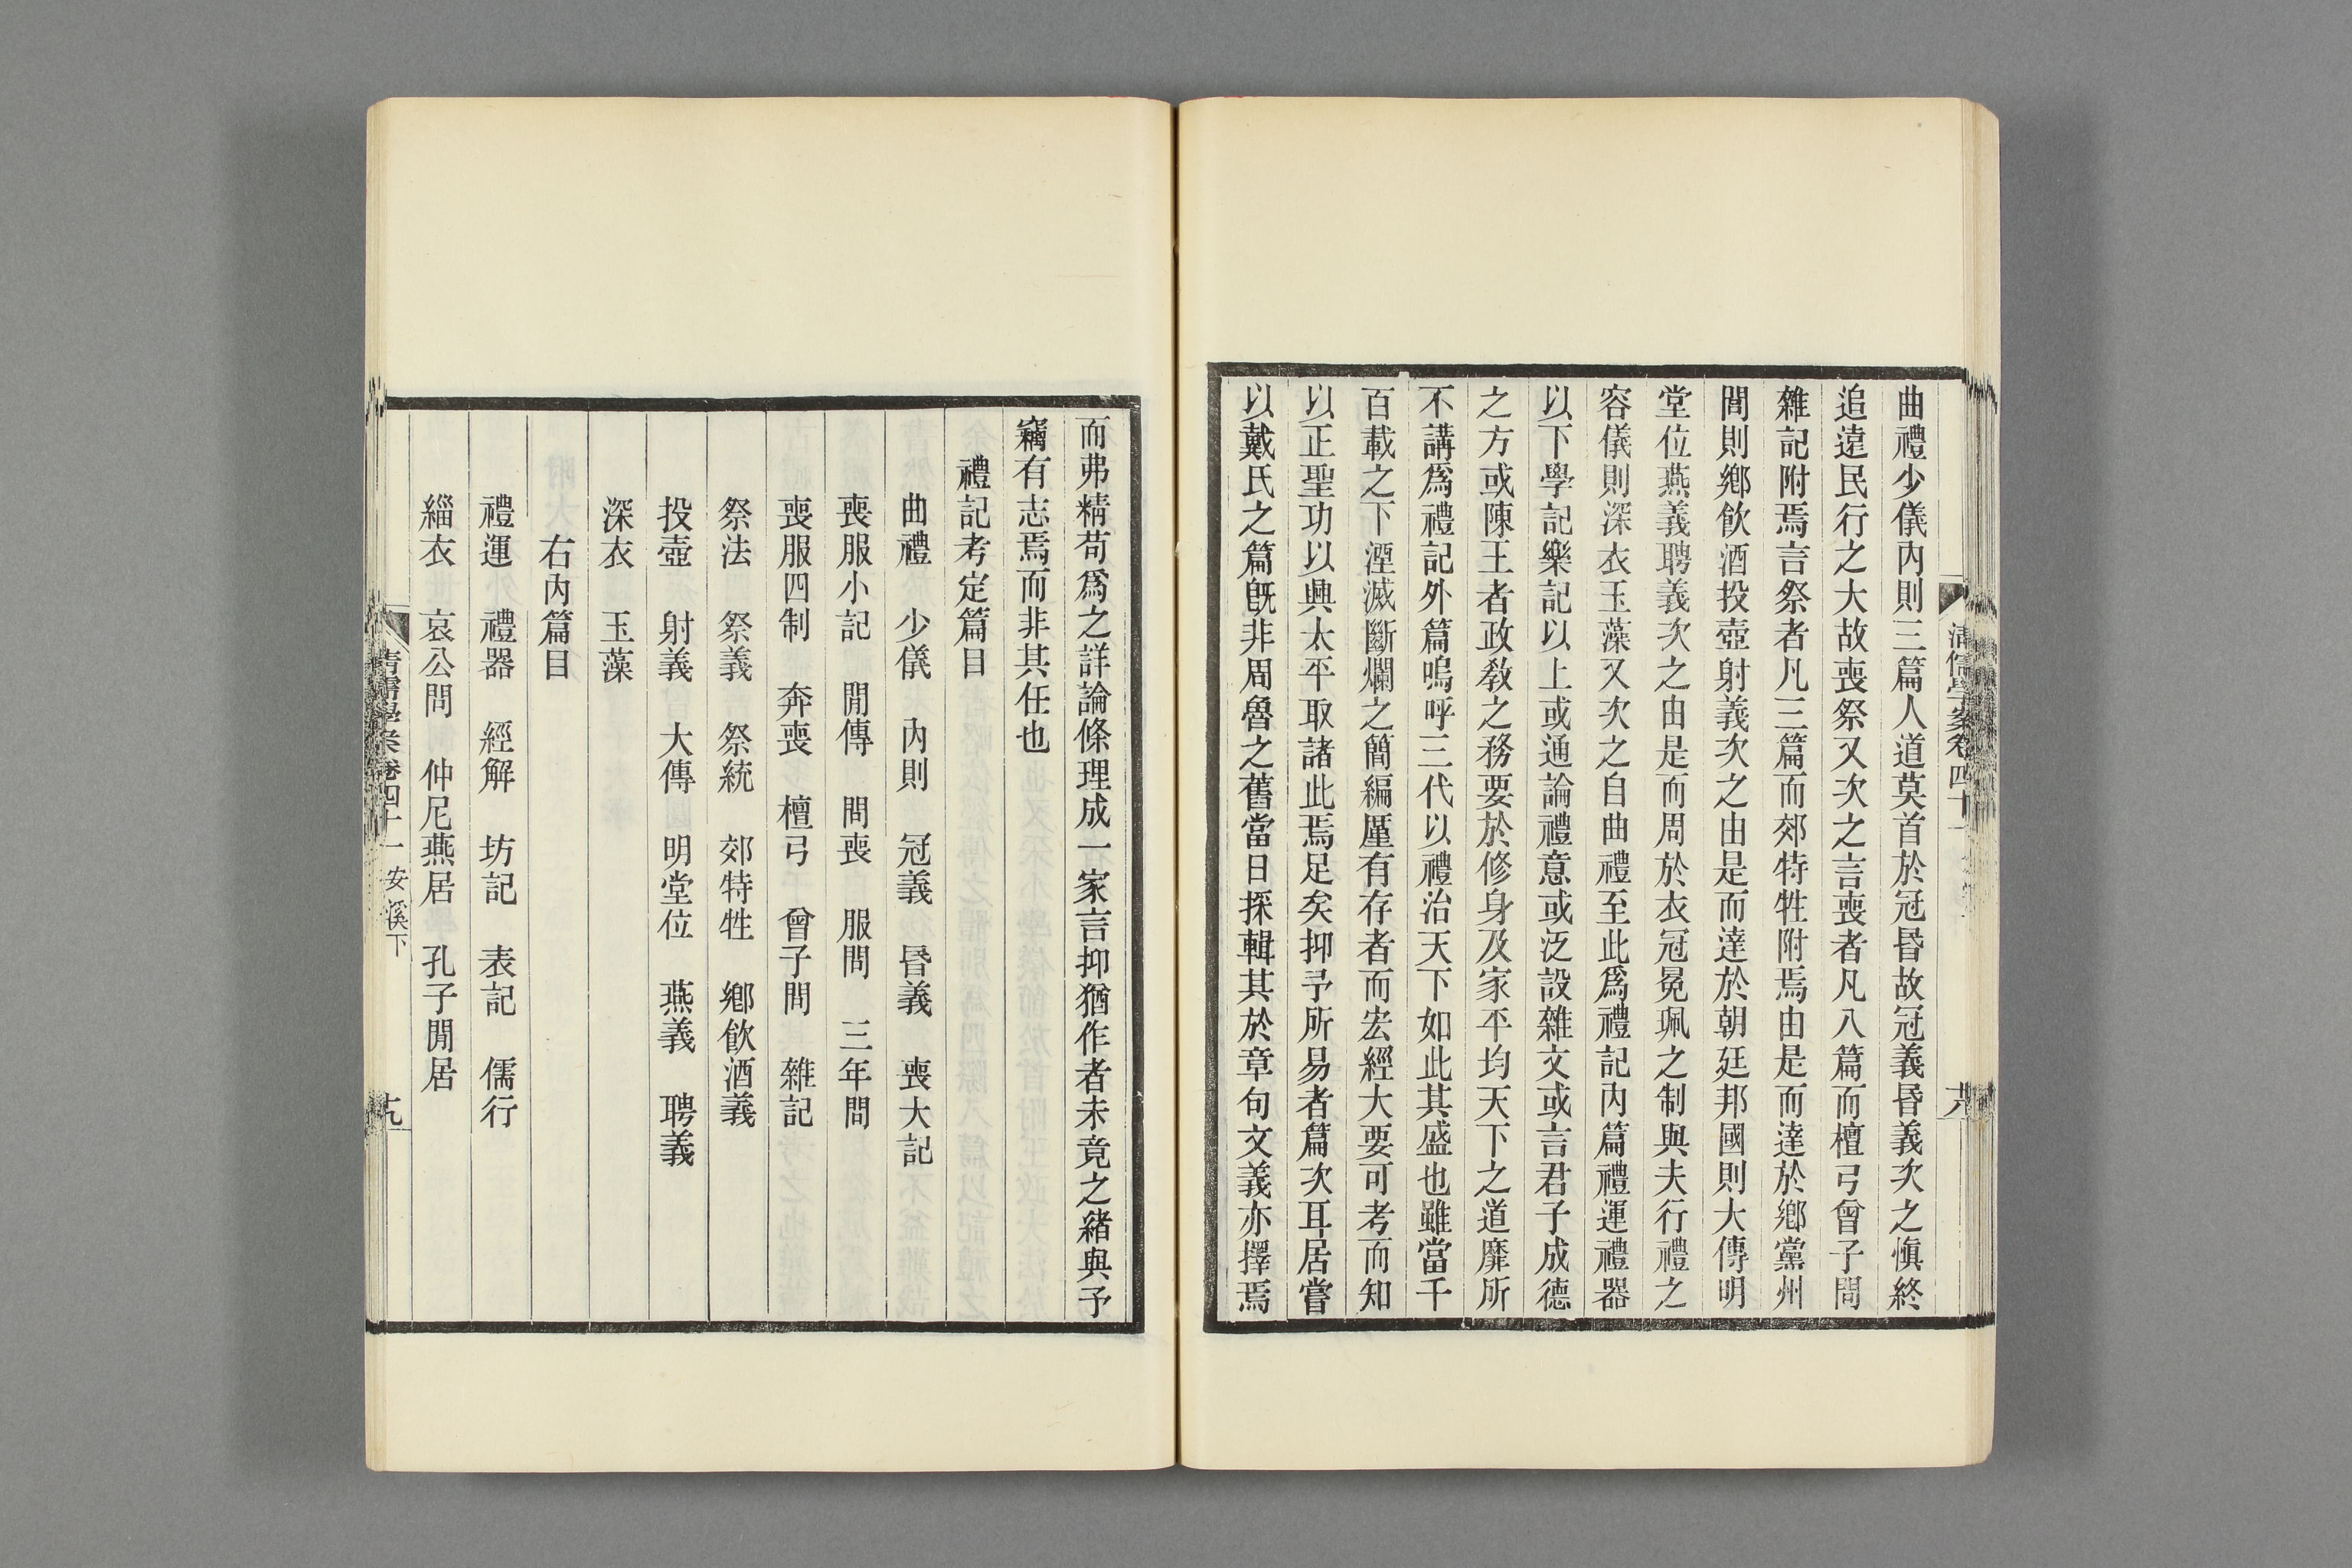 曲禮少儀內則三篇人道莫首於冠昬故冠義昬義次之愼終
追遠民行之大故喪祭又次之言喪者凡八篇而檀弓曾子問
雜記附焉言祭者凡三篇而郊特牲附焉由是而達於鄕黨州
閭則鄕飮酒投壺射義次之由是而達於朝廷邦國則大傳明
堂位燕義聘義次之由是而周於衣冠冕珮之制與夫行禮之
容儀則深衣玉藻又次之自曲禮至此爲禮記內篇禮運禮器
以下學記樂記以上或通論禮意或泛設雜文或言君子成德
之方或陳王者政敎之務要於修身及家平均天下之道靡所
不講爲禮記外篇嗚呼三代以禮治天下如此其盛也雖當千
百載之下湮滅斷爛之簡編厪有存者而宏經大要可考而知
以正聖功以興太平取諸此焉足矣抑予所易者篇次耳居嘗
以戴氏之篇旣非周魯之舊當日採輯其於章句文義亦擇焉
清儒學案卷四十一
大
而弗精苟爲之詳論條理成一家言抑猶作者未竟之緒與予
竊有志焉而非其任也
禮記考定篇目
曲禮 少儀 內則 冠義 昬義 喪大記
喪服小記 閒傳 問喪 服問 三年問
喪服四制 奔喪 檀弓 曾子問 雜記
祭法 祭義 祭統 郊特牲 鄕飮酒義
投壺 射義 大傳 明堂位 燕義 聘義
深衣 玉藻
右內篇目
禮運 禮器 經解 坊記 表記 儒行
緇衣 哀公問 仲尼燕居 孔子閒居
清儒學案卷四十一 安溪下
九